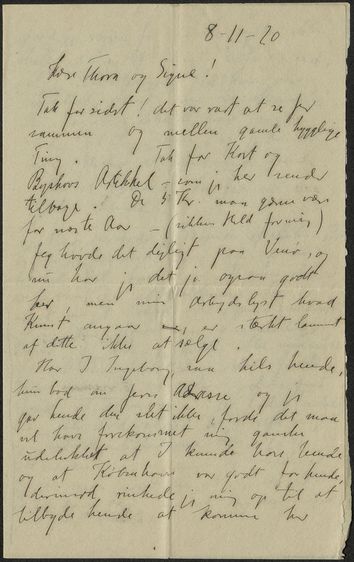 8-11-20
Kære Thora og Signe!
Tak for sidst! det var rart at se jer
sammen og mellem gamle hyggelige
Ting. Tak for Kort og
Byskovs Artikkel – som jeg her sender
tilbage. De 5 Kr. man gerne være
for næste Aar – (sikken Held for mig)
Jeg havde det dejligt paa Venø, og
nu har jeg det jo ogsaa godt
her men min Arbejdslyst hvad
Kunst angaar er stærkt lammet
af dette ikke at sælge.
Har I Ingeborg, saa hils hende,
hun bad om jeres Adresse og jeg
gav hende den slet ikke, fordi det
vil have forekommet mig ganske
udelukket at I kunde have hende
og at København var godt for hende,
derimod jeg mig op til at
tilbyde hende at komme her